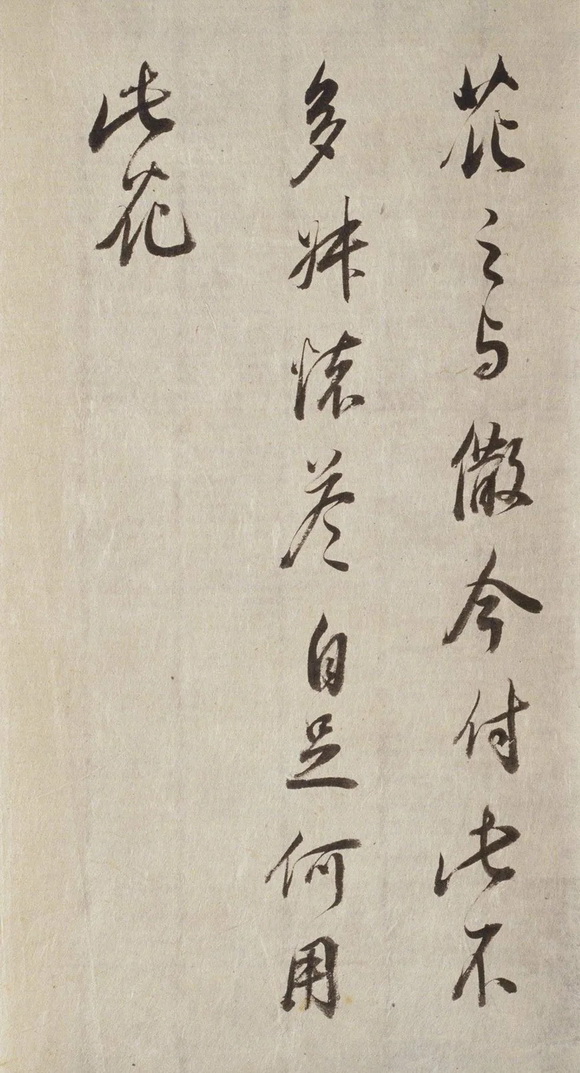 花之与儆今付此不
多妹懐若自足何用
此花